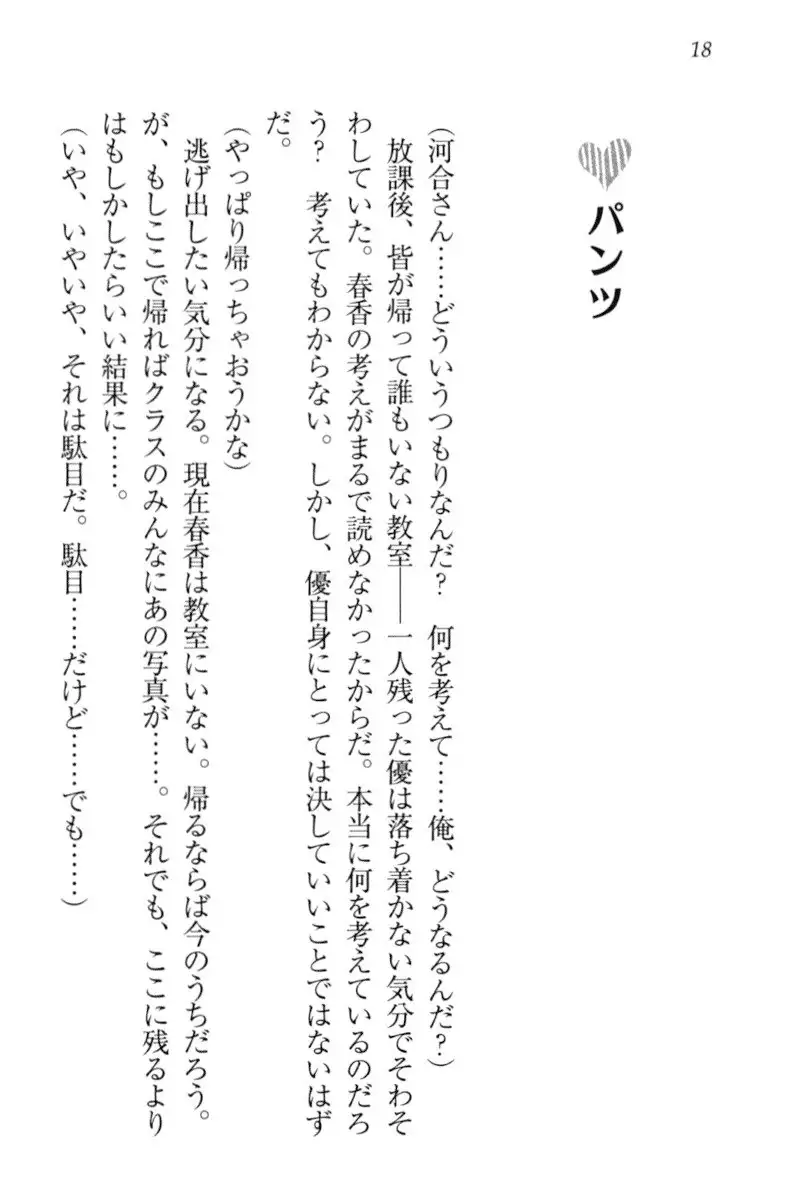 18
パンツ
（河合さん……どういうつもりなんだ？　何を考えて……俺、どうなるんだ？）
　放課後、皆が帰って誰もいない教室――一人残った優は落ち着かない気分でそわそ
わしていた。春香の考えがまるで読めなかったからだ。本当に何を考えているのだろ
う？　考えてもわからない。しかし、優自身にとっては決していいことではないはず
だ。
（やっぱり帰っちゃおうかな）
　逃げ出したい気分になる。現在春香は教室にいない。帰るならば今のうちだろう。
が、もしここで帰ればクラスのみんなにあの写真が……。それでも、ここに残るより
はもしかしたらいい結果に……。
（いや、いやいや、それは駄目だ。駄目……だけど……でも……）